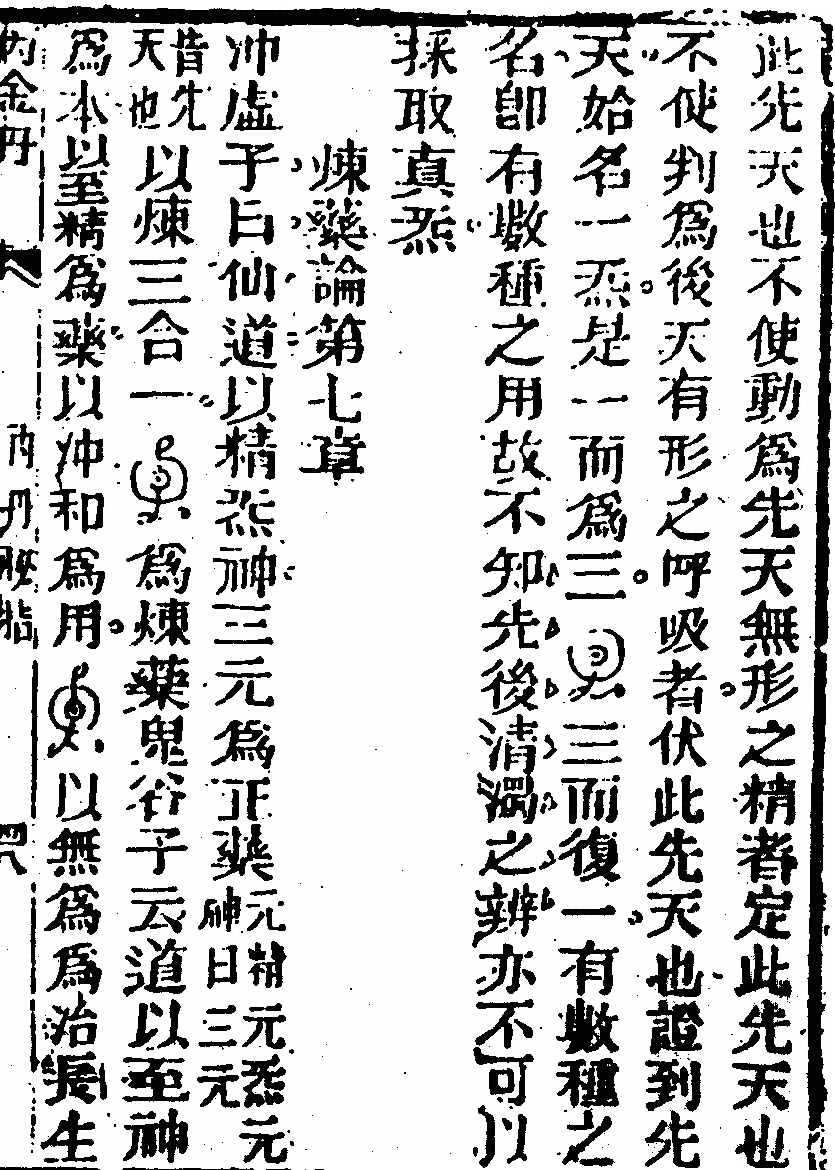 此先天也不使動爲先天無形之精者定此先天也
不使判爲後天有形之呼吸者伏此先天也證到先
天始名一炁是一而爲三三而復一有數種之
名卽有數種之用故不知先後清濁之辨亦不可以
採取真炁
煉藥論第七章
冲虛子曰仙道以精炁神三元爲正藥元精元炁元神曰三元
昔先天也以煉三合一爲煉藥鬼谷子云道以至神
爲本以至精爲藥以冲和爲用以無爲爲治長生
金丹
內丹